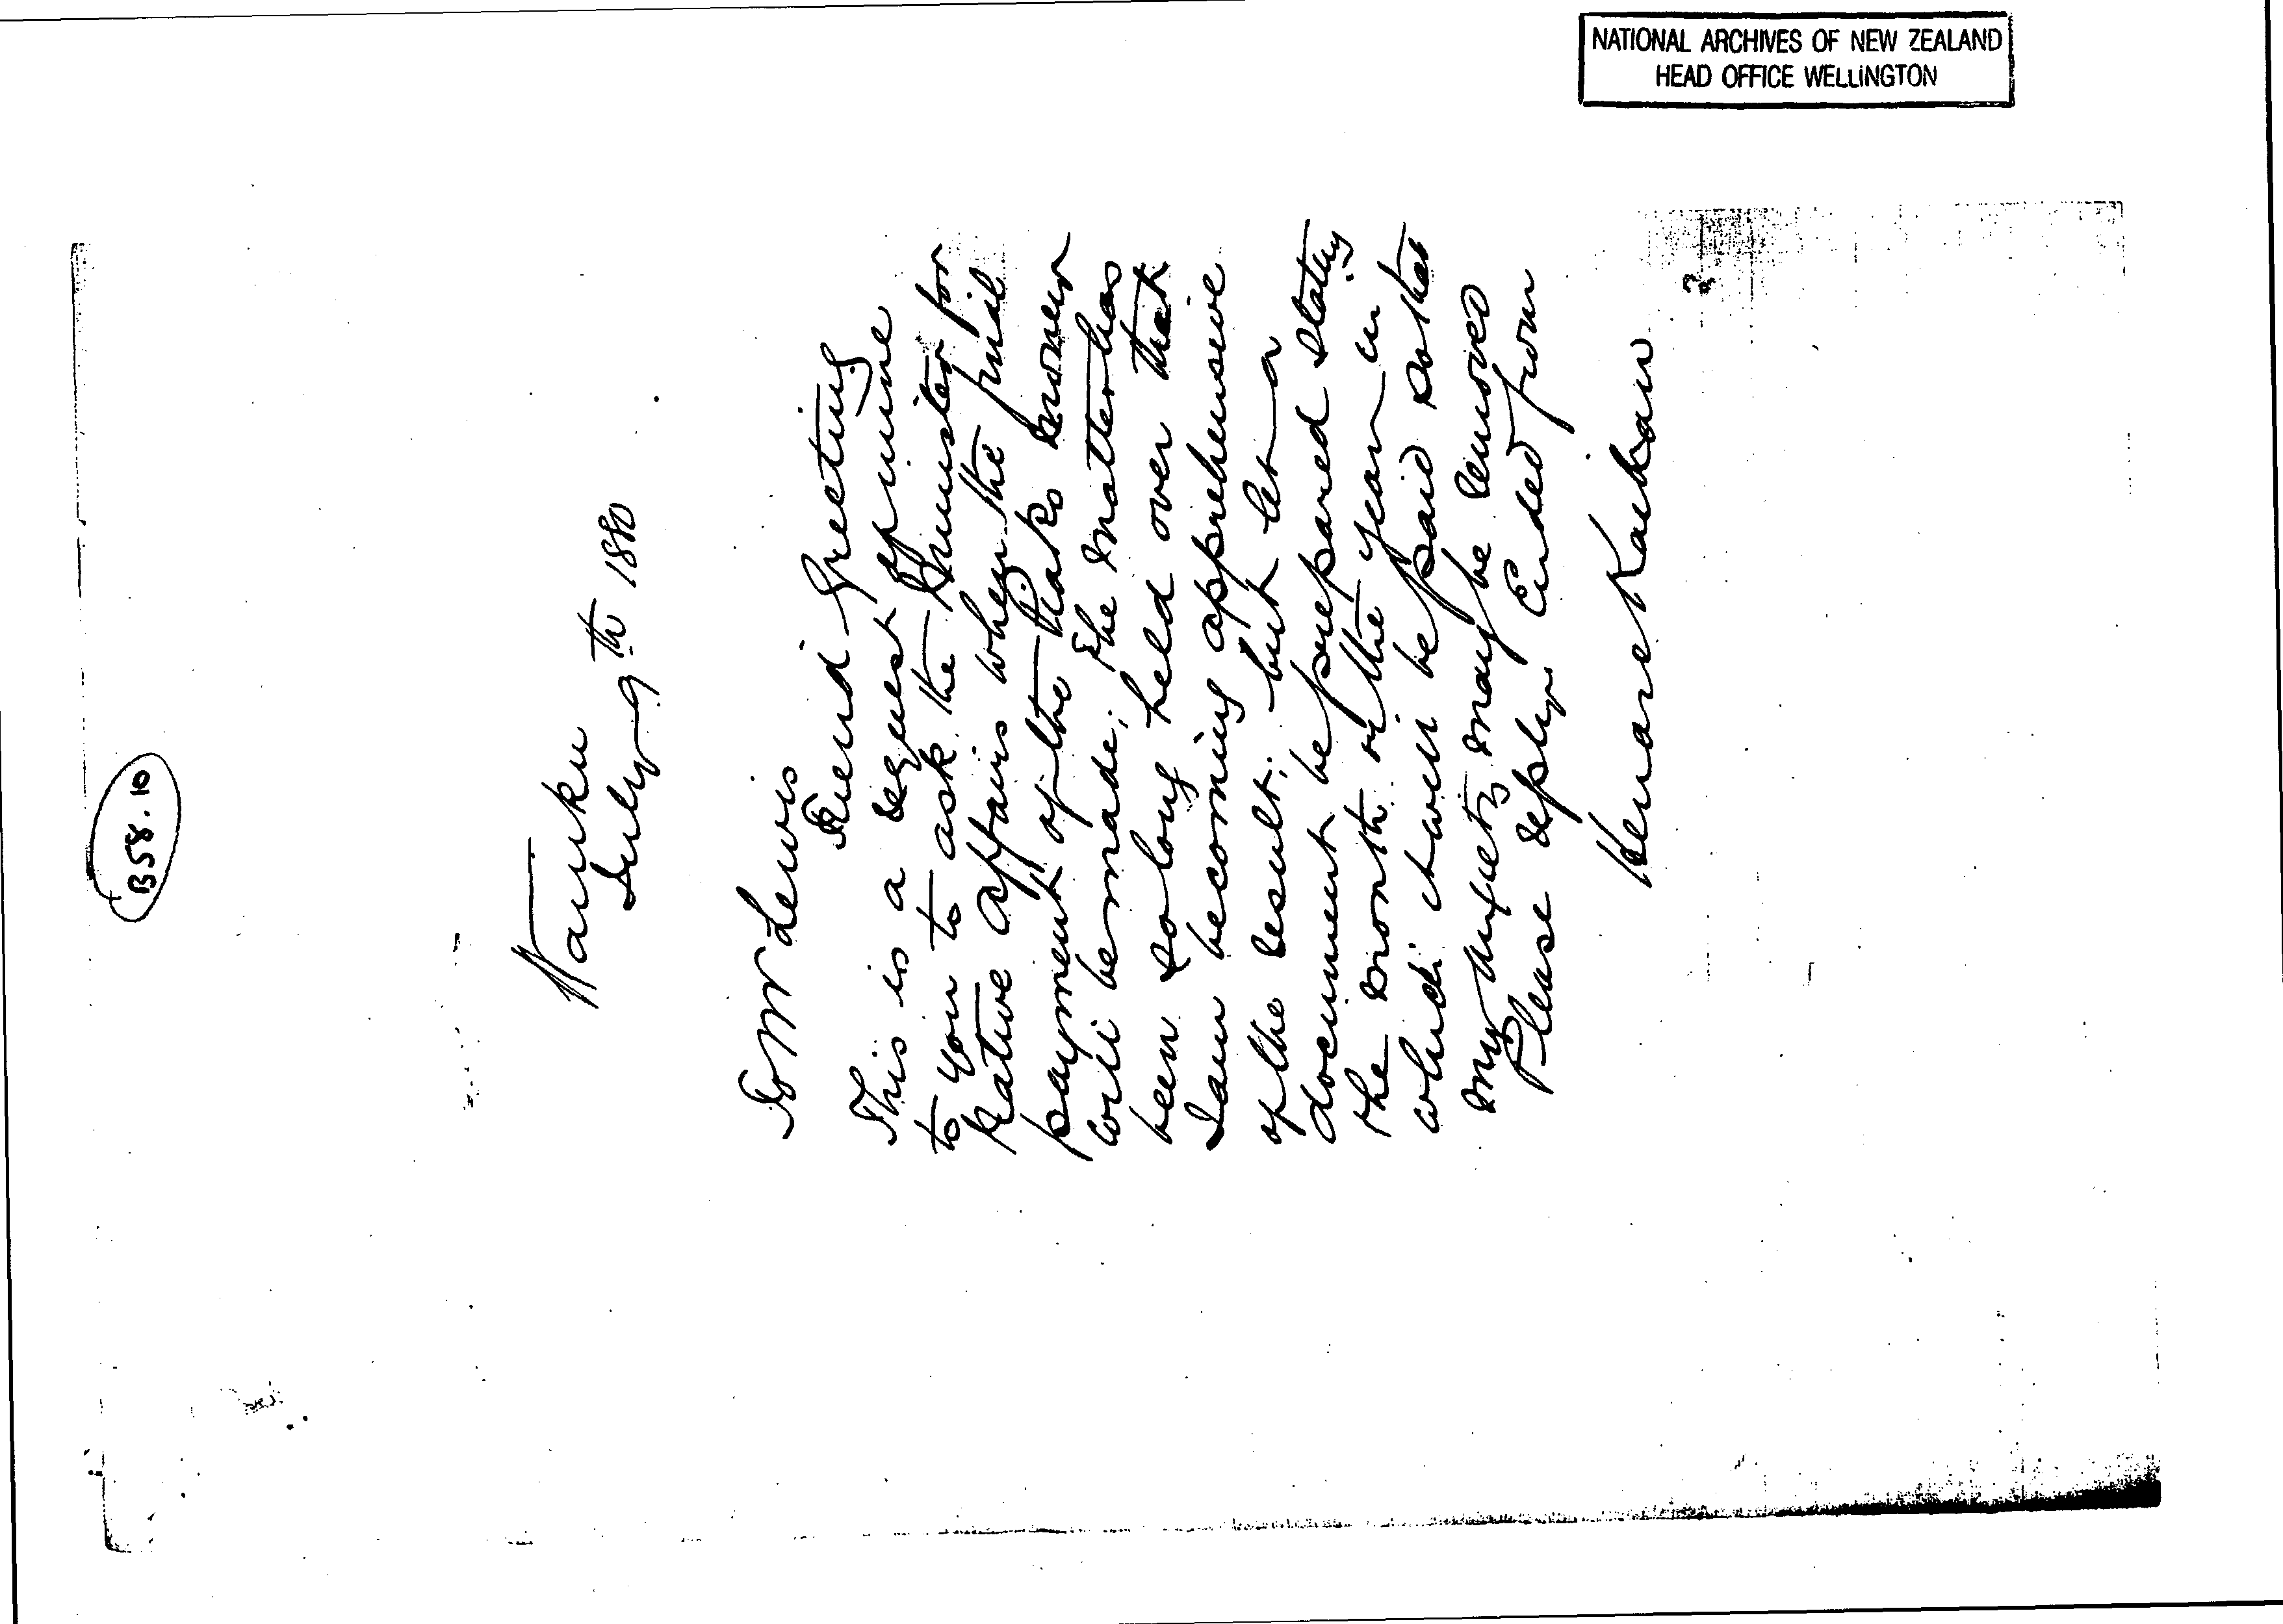 NATIONAL ARCHIVES OF NEW ZEALAND
HEAD OFFICE WELLINGTON
B58.10
Waiuku
July 9th 1880
To Mr Lewis
Friend Greeting
This is a request of mine
to you to ask the Minister for
Native Affairs when the final
payment of the Piako money
will be made; the matter has
been so long held over that
I am becoming apprehensive
of the result; but let a
document be prepared stating
the month or the year in
which it will be paid so that
my anxiety may be removed
Please reply. Ended from